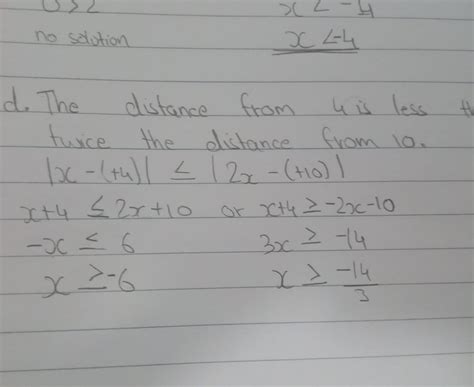 x < -4
no solution
x < -4
d. The distance from 4 is less
twice the distance from 10.
|x - (+4)| ≤ |2x - (+10)|
x+4 ≤ 2x+10 or x+4 ≥ -2x-10
-x ≤ 6 3x ≥ -14
x ≥ -6 x ≥ -14/3